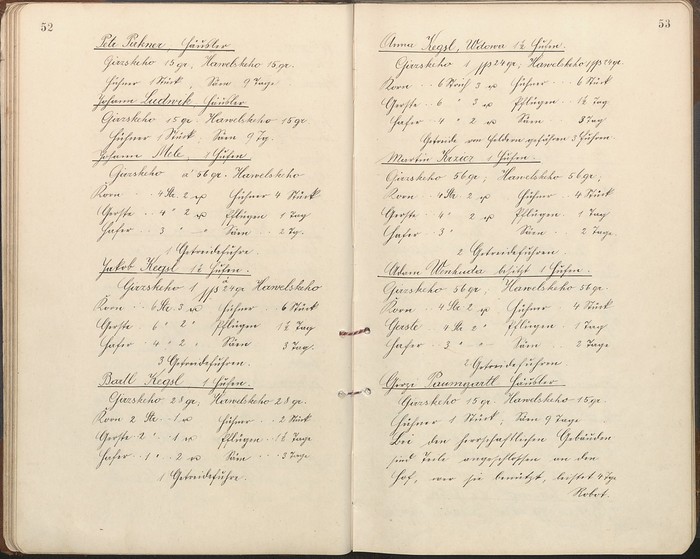 52
Pete Pirkner, Häusler
Girzskeho 15 gr, Hawelskeho 15 gr.
Hühner 1 Stück, Säen 9 Tage
Johann Ludwik Häusler
Girzskeho 15 gr. Hawelskeho 15 gr.
Hühner 1 Stück, Säen 9 Tg.
Johann Mole, 1 Hufen
Girzskeho à 56 gr. Hawelskeho
Korn 4 Str. 2 Hühner 4 Stück
Gerste 4 " 2 Pflügen 1 Tag
Hafer 3 " Säen 2 Tg.
1 Getreidefuhre.
Jakob Kegsl 1½ Hufen.
Girzskeho 1 ßß 24 gr à Hawelskeho
Korn 6 Str. 3 Hühner 6 Stück
Gerste 6 " 2 " Pflügen 1½ Tag
Hafer 4 " 2 " Säen 3 Tag.
3 Getreidefuhren.
Bartl Kegsl 1 Hufen.
Girzskeho 28 gr, Hawelskeho 28 gr.
Korn 2 Str. 1 Hühner 2 Stück
Gerste 2 " 1 Pflügen 1½ Tage
Hafer 1 " 2 Säen 3 Tage.
1 Getreidefuhre.
53
Anna Kegsl, Witowa 1½ Hufen.
Girzskeho 1 ßß 24 gr, Hawelskeho 1 ßß 24 gr.
Korn 6 Strich 3 Hühner 6 Stück
Gerste 6 " 3 Pflügen 1½ Tag
Hafer 4 " 2 Säen 3 Tag
Getreide von Feldern geführen 3 Fuhren.
Martin Kozier 1 Hufen.
Girzskeho 56 gr, Hawelskeho 56 gr,
Korn 4 Str. 2 Hühner 4 Stück
Gerste 4 " 2 Pflügen 1 Tag
Hafer 3 " Säen 2 Tage
2 Getreidefuhren.
Adam Wenhuda besitzt 1 Hufen.
Girzskeho 56 gr, Hawelskeho 56 gr.
Korn 4 Str. 2 Hühner 4 Stück
Gerste 4 Str. 2 " Pflügen 1 Tag
Hafer 3 " " Säen 2 Tage
2 Getreidefuhren
George Paumgartl Häusler
Girzskeho 15 gr. Hawelskeho 15 gr.
Hühner 1 Stück, Säen 9 Tage
Bei den herrschaftlichen Gebäuden
sind Teile angeschlossen an den
Hof, wer sie benützt, leistet 4 Tge
Robot.